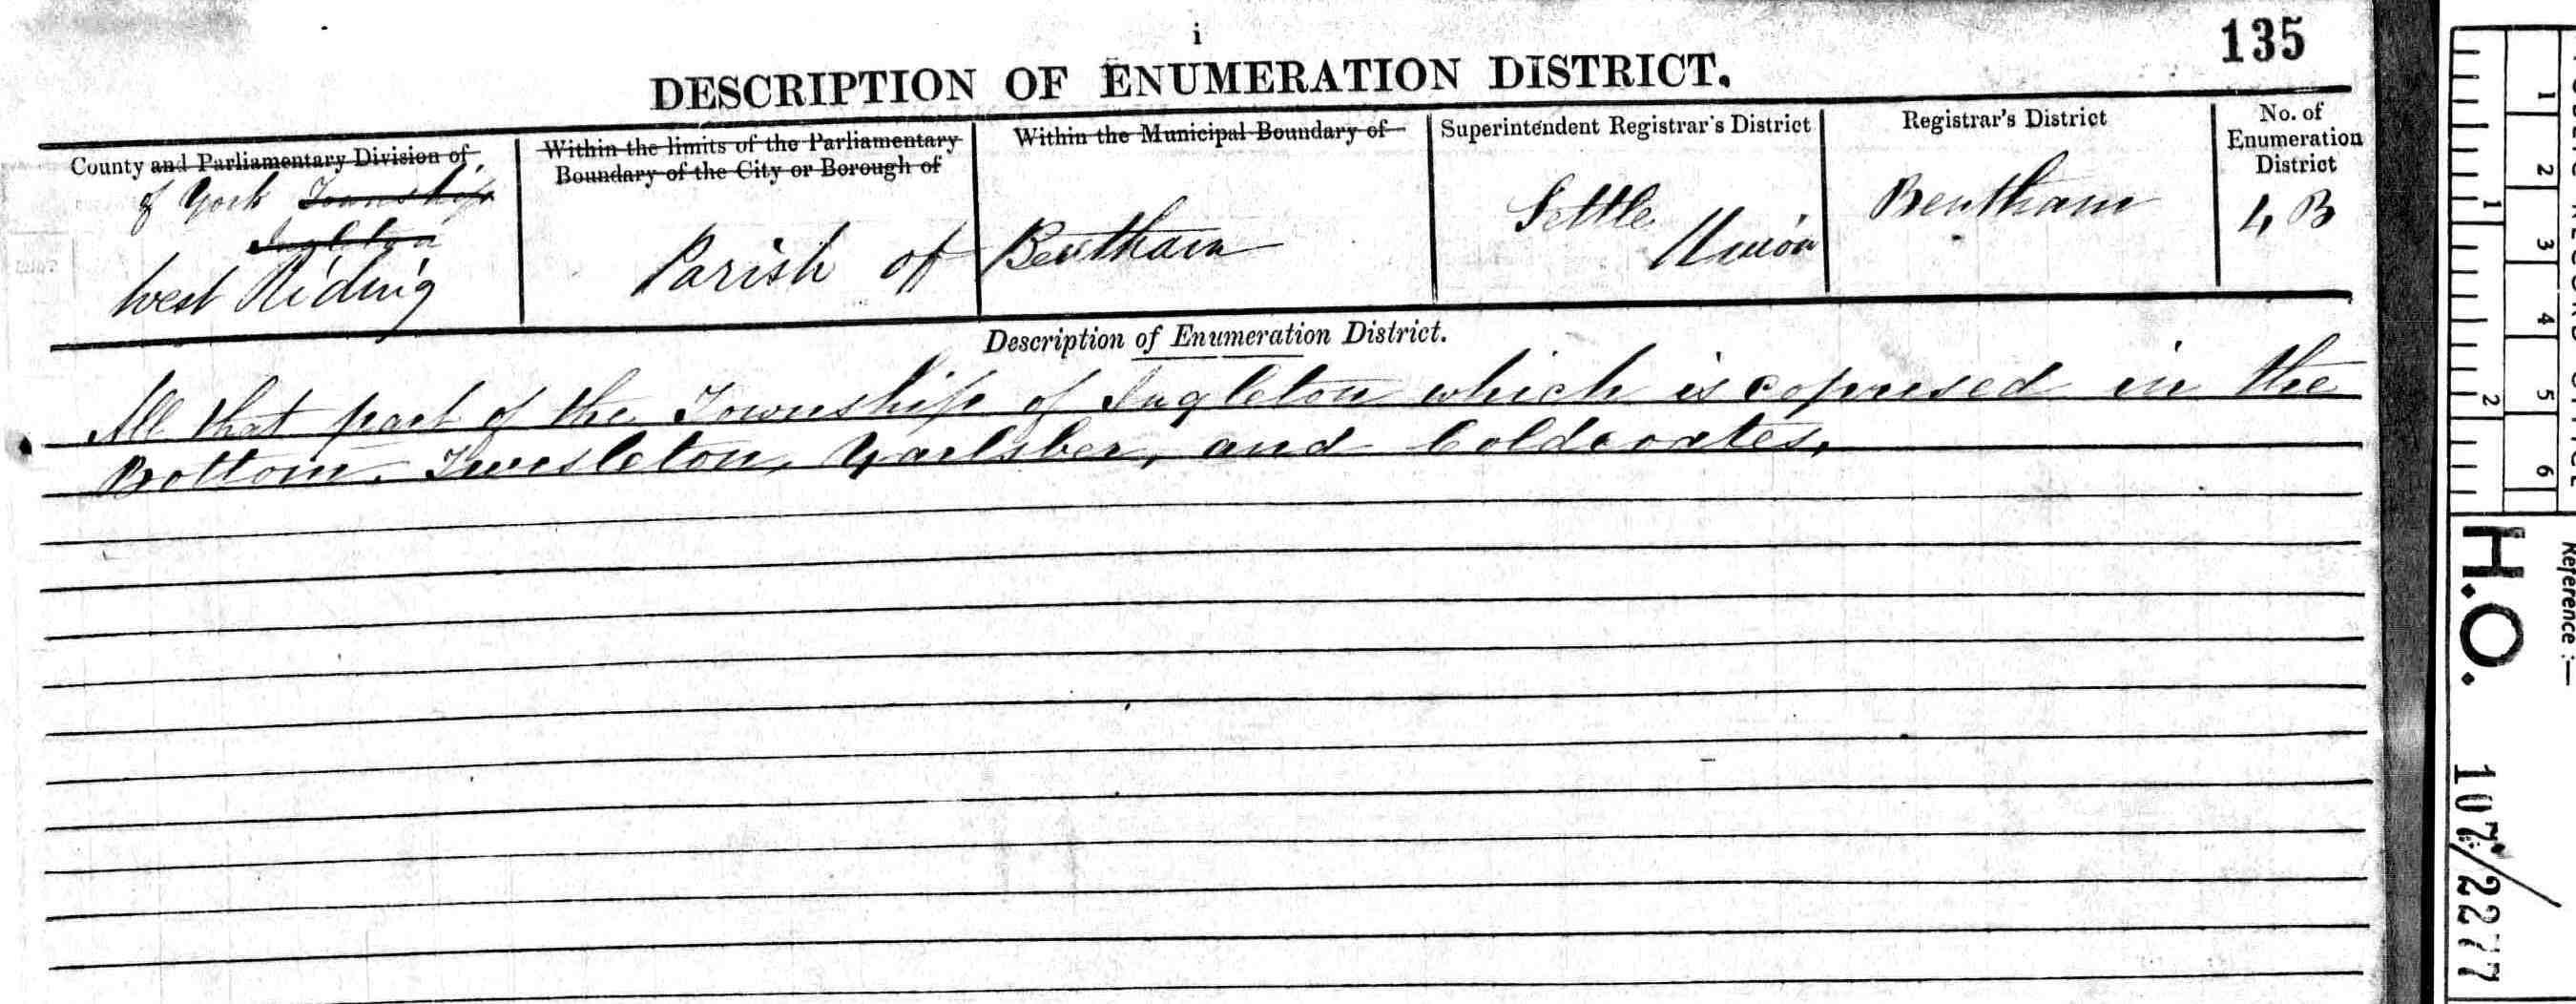 i
135
DESCRIPTION OF ENUMERATION DISTRICT.
County and Parliamentary Division of
of York Township
Ingleton
West Riding
Within the limits of the Parliamentary
Boundary of the City or Borough of
Parish of
Within the Municipal Boundary of
Bentham
Superintendent Registrar's District
Settle
Union
Registrar's District
Bentham
No. of
Enumeration
District
4 B
Description of Enumeration District.
All that part of the Township of Ingleton which is coprised in the
Bottom. Twisleton, Yarlsber, and Coldcoates,
1
2
3
4
5
6
1
2
Reference :—
H.O. 107/2277